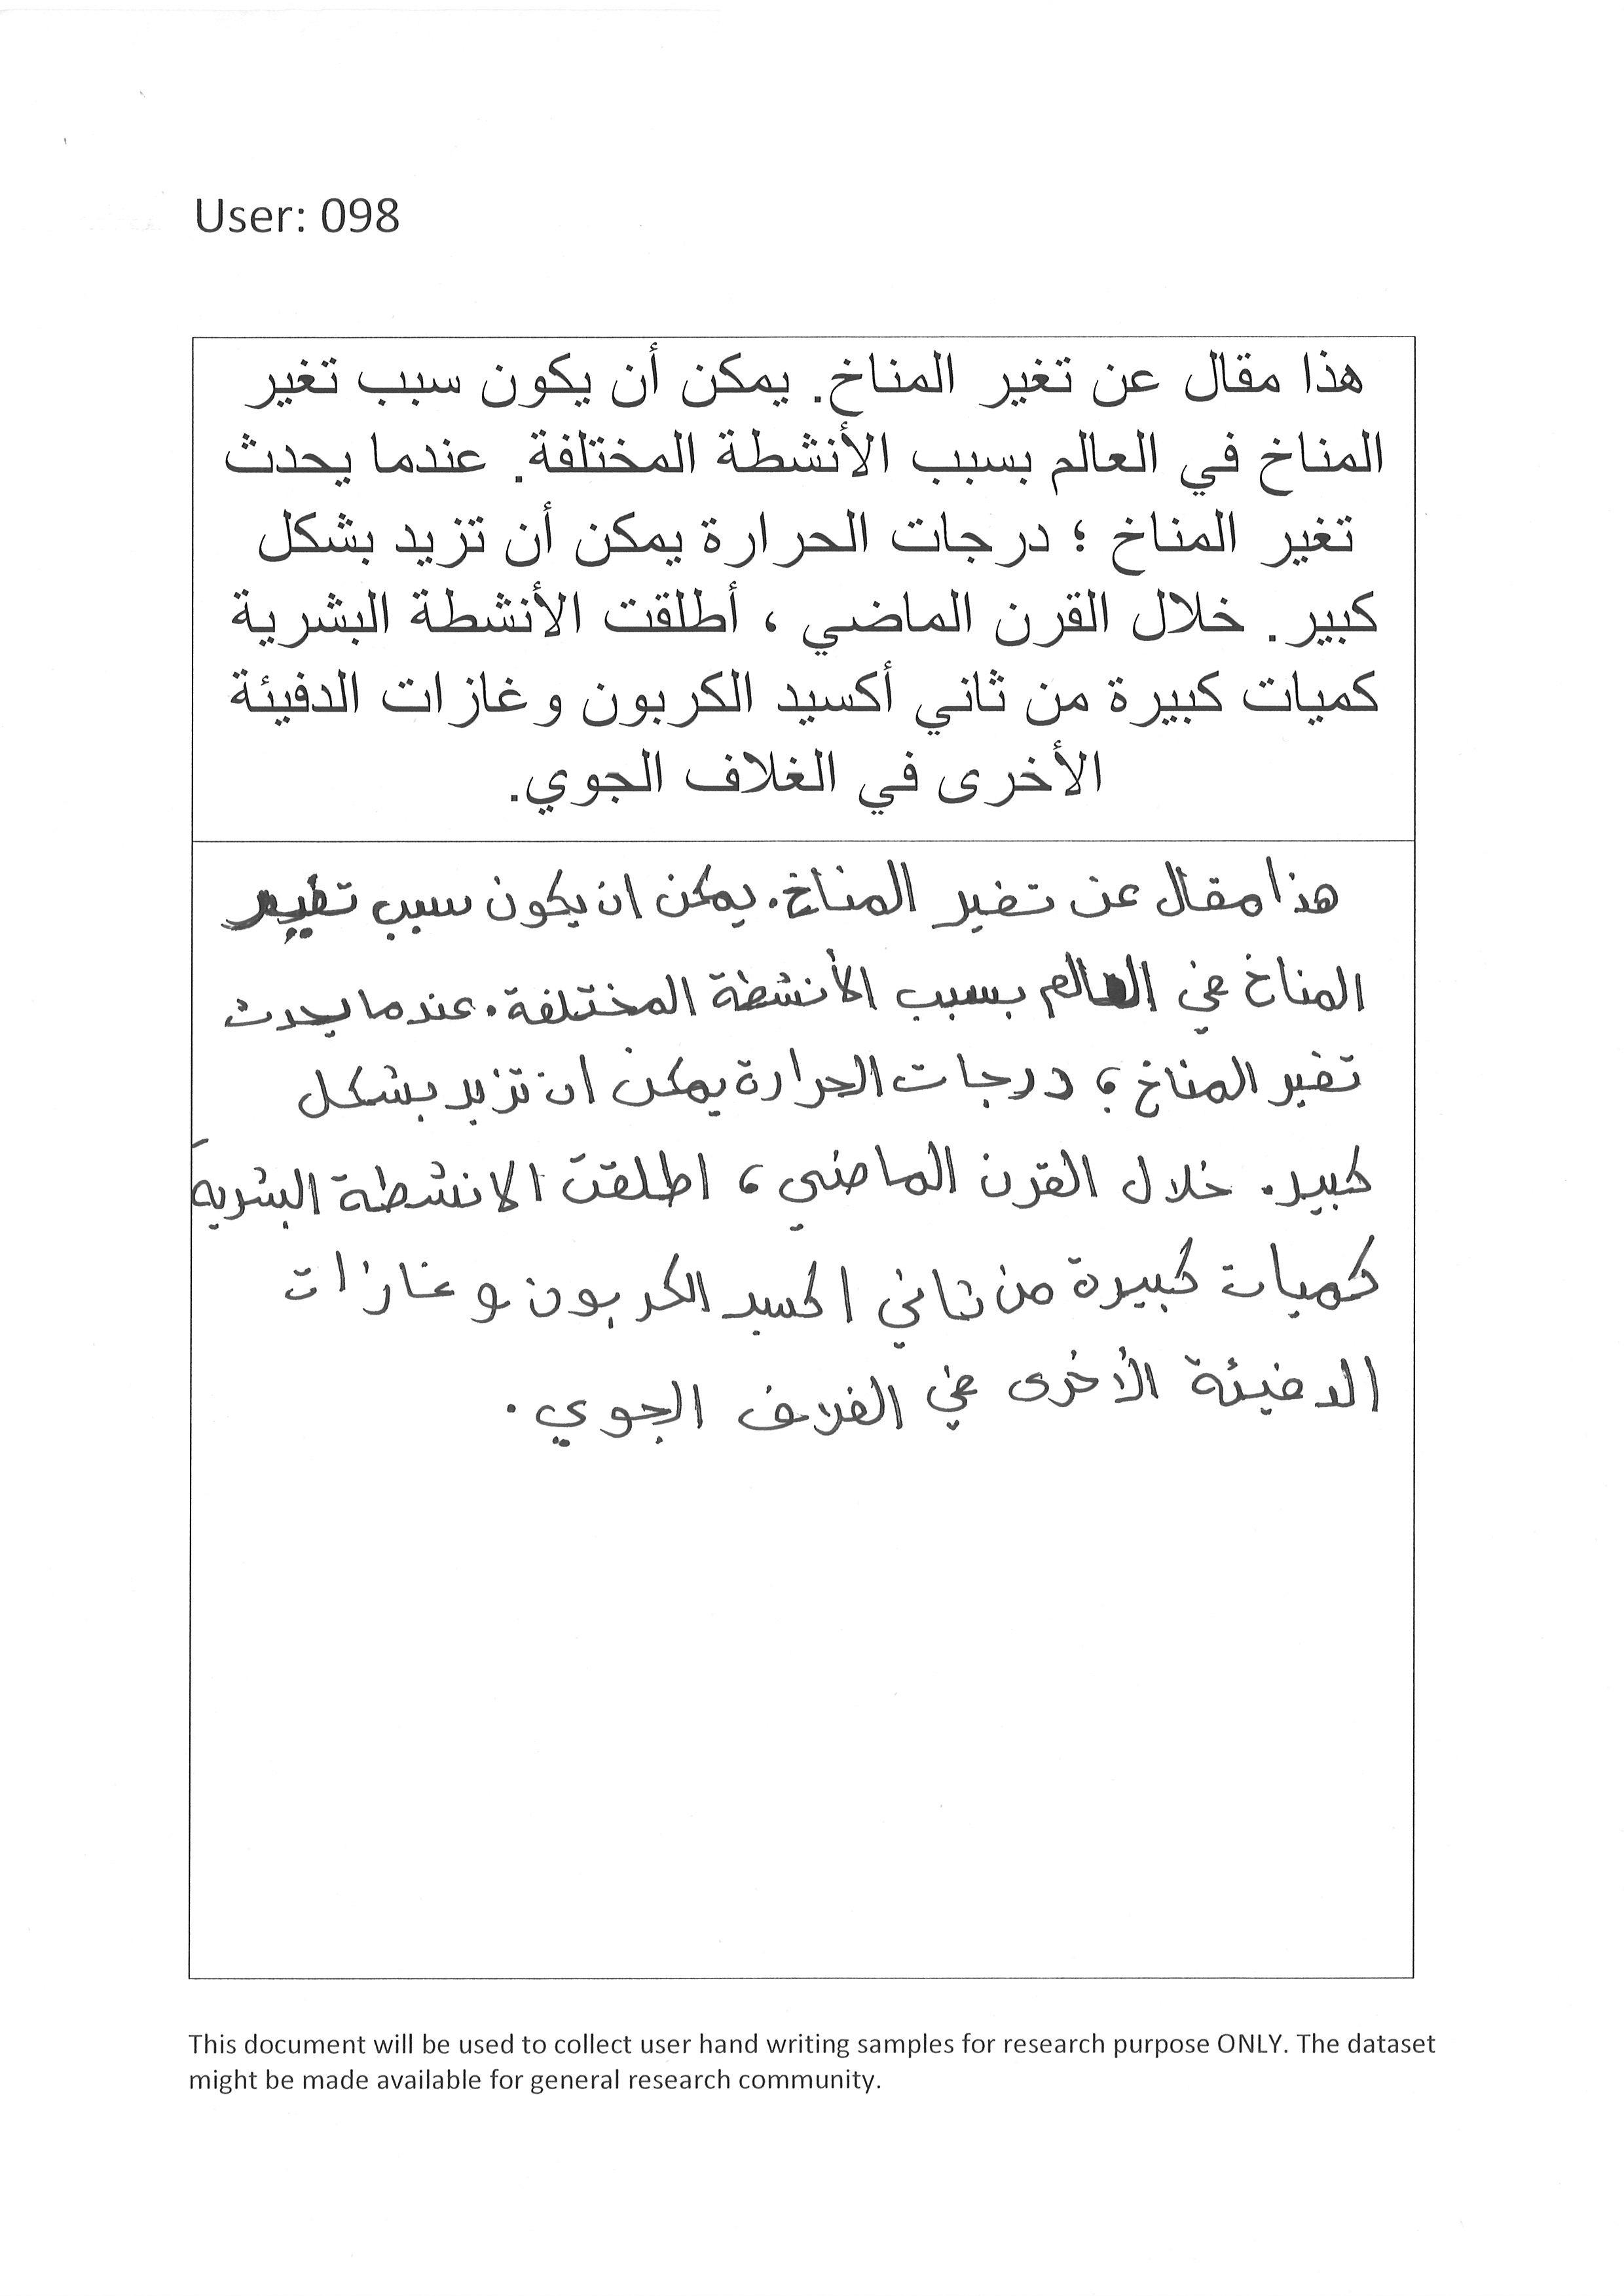 User: 098
هذا مقال عن تغير المناخ. يمكن أن يكون سبب تغير
المناخ في العالم بسبب الأنشطة المختلفة. عندما يحدث
تغير المناخ ؛ درجات الحرارة يمكن أن تزيد بشكل
كبير. خلال القرن الماضي ، أطلقت الأنشطة البشرية
كميات كبيرة من ثاني أكسيد الكربون وغازات الدفيئة
الأخرى في الغلاف الجوي.
هذا مقال عن تغير المناخ. يمكن ان يكون سبب تغيير
المناخ في العالم بسبب الأنشطة المختلفة. عندما يحدث
تغير المناخ ؛ درجات الحرارة يمكن ان تزيد بشكل
كبير. خلال القرن الماضي ، اطلقت الانشطة البشرية
كميات كبيرة من ثاني اكسيد الكربون وغازات
الدفيئة الأخرى في الغلاف الجوي.
This document will be used to collect user hand writing samples for research purpose ONLY. The dataset
might be made available for general research community.